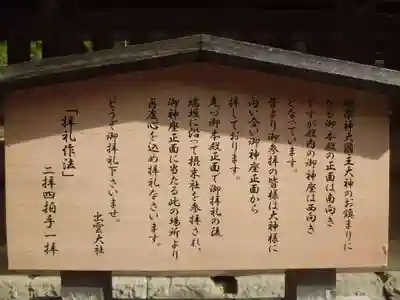 御祭神大國主大神のお鎮まりに
なる御本殿の正面は南向き
ですが殿内の御神座は西向き
となっています。
昔より御参拝の皆様は大神様に
向い合い御神座正面から
拝しております。
先づ御本殿正面で御拝礼の後、
瑞垣に沿って摂末社を参拝され、
御神座正面に当たる此の場所より
再度心を込め拝礼なさいます。
どうぞ御拝礼下さいませ。
出雲大社
「拝礼作法」
二拝四拍手一拝